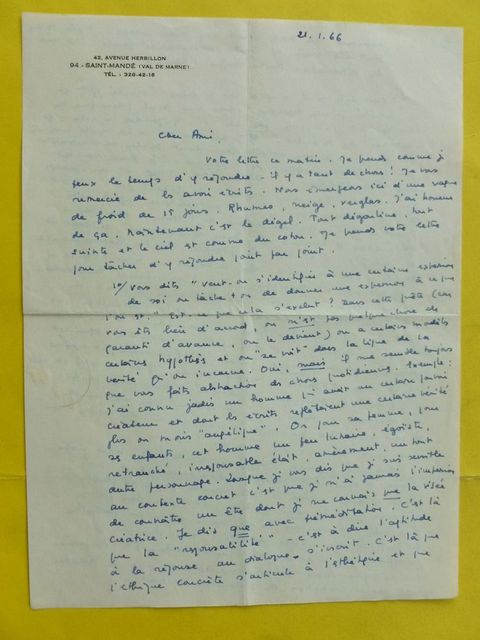 21.1.66
42, AVENUE HERBILLON
94 - SAINT-MANDÉ (VAL DE MARNE)
TÉL. : 328-42-16
Cher Ami,
Votre lettre ce matin. Je prends comme je
peux le temps d'y répondre - il y a tant de choses ! Je vous
remercie de les avoir écrites. Nous émergeons ici d'une vague
de froid de 15 jours. Rhumes, neige, verglas. J'ai horreur
de ça. Maintenant c'est le dégel. Tout dégouline, tout
suinte et le ciel est comme du coton. Je prends votre lettre
pour tâcher d'y répondre point par point.
1o/ Vous dites "veut-on s'identifier à une certaine expression
de soi ou tâche-t-on de donner une expression à ce que
l'on est." Est-ce que cela s'exclut ? Dans cette
vous êtes bien d'accord, on n'est pas quelque chose de
garanti d'avance, on le devient) on a certains modèles
certaines hypothèses et on "se voit" dans la ligne de la
vérité qu'on incarne. Oui, mais il me semble toujours
que vous faites abstraction des choses quotidiennes. Exemple :
j'ai connu jadis un homme qui avait un certain
créateur et dont les écrits reflétaient une certaine vérité
plus ou moins "angélique". Or pour sa femme, pour
ses enfants, cet homme un peu lunaire, égoïste,
retranché, irresponsable était, amèrement, un tout
autre personnage. Lorsque je vous dis que je suis sensible
au contexte concret c'est que je n'ai jamais l'impression
de connaître un être dont je ne connais que la visée
créatrice. Je dis que avec préméditation. C'est là
que la "responsabilité" - c'est à dire l'aptitude
à la réponse, au dialogue - s'inscrit. C'est là que
l'éthique concrète s'articule à l'esthétique et que